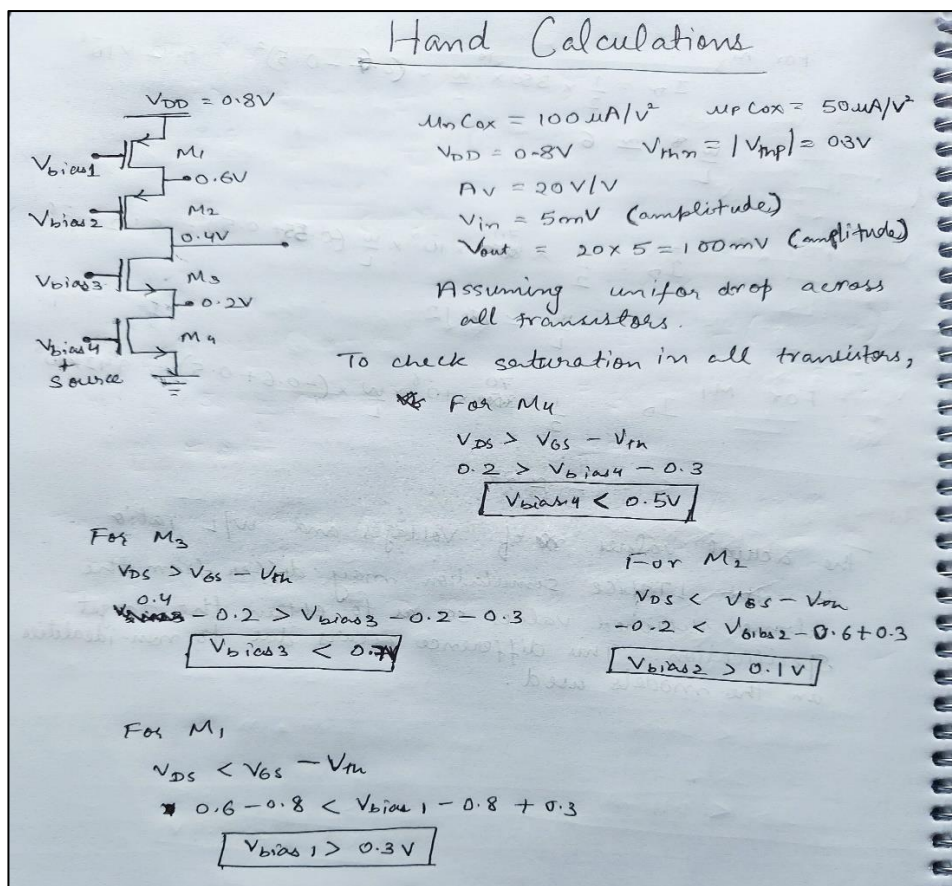 Hand Calculations
VDD = 0.8V
Vbias1
M1
0.6V
Vbias2
M2
0.4V
Vbias3
M3
0.2V
Vbias4
+
Source
M4
μnCox = 100 μA/V² μpCox = 50 μA/V²
VDD = 0.8V Vthn = |Vthp| = 0.3V
AV = 20 V/V
Vin = 5mV (amplitude)
Vout = 20 x 5 = 100 mV (amplitude)
Assuming unifor drop across
all transistors.
To check saturation in all transistors,
For M4
VDS > VGS - Vth
0.2 > Vbias4 - 0.3
Vbias4 < 0.5V
For M3
VDS > VGS - Vth
0.4 - 0.2 > Vbias3 - 0.2 - 0.3
Vbias3 < 0.7V
For M2
VDS < VGS - Vth
-0.2 < Vbias2 - 0.6 + 0.3
Vbias2 > 0.1V
For M1
VDS < VGS - Vth
0.6 - 0.8 < Vbias1 - 0.8 + 0.3
Vbias1 > 0.3V